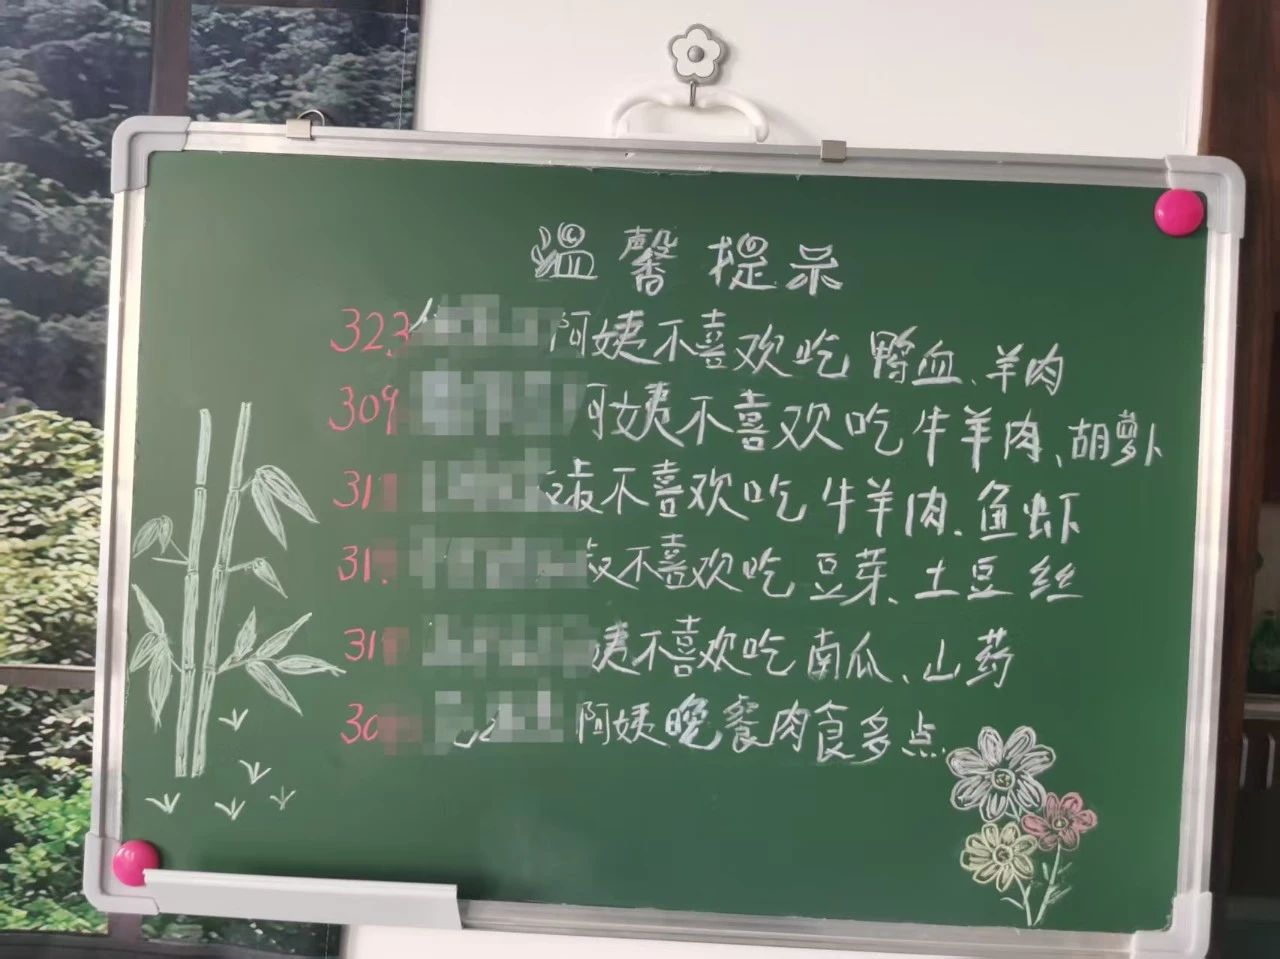 温馨提示
323 阿姨不喜欢吃 鸭血、羊肉
309 阿姨不喜欢吃牛羊肉、胡萝卜
31 不喜欢吃 牛羊肉、鱼虾
31 不喜欢吃 豆芽、土豆丝
31 姨不喜欢吃 南瓜、山药
30 阿姨晚餐肉食多点